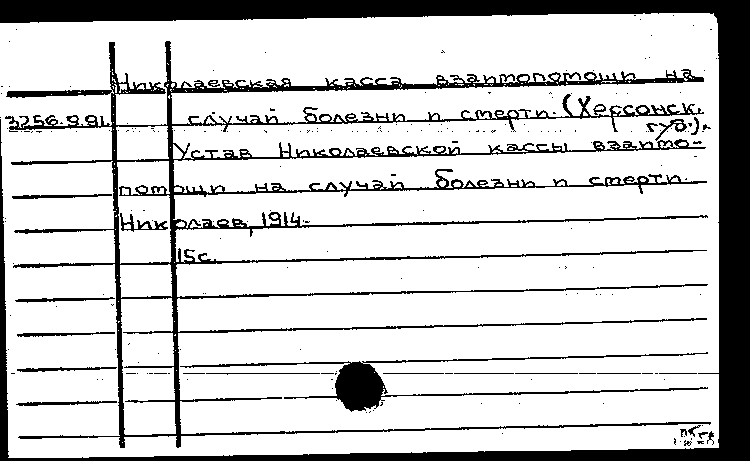 Николаевская касса взаимопомощи на
3256.9.91. случай болезни и смерти. (Херсонск.
губ.).
Устав Николаевской кассы взаимо-
помощи на случай болезни и смерти.
Николаев, 1914.
15с.